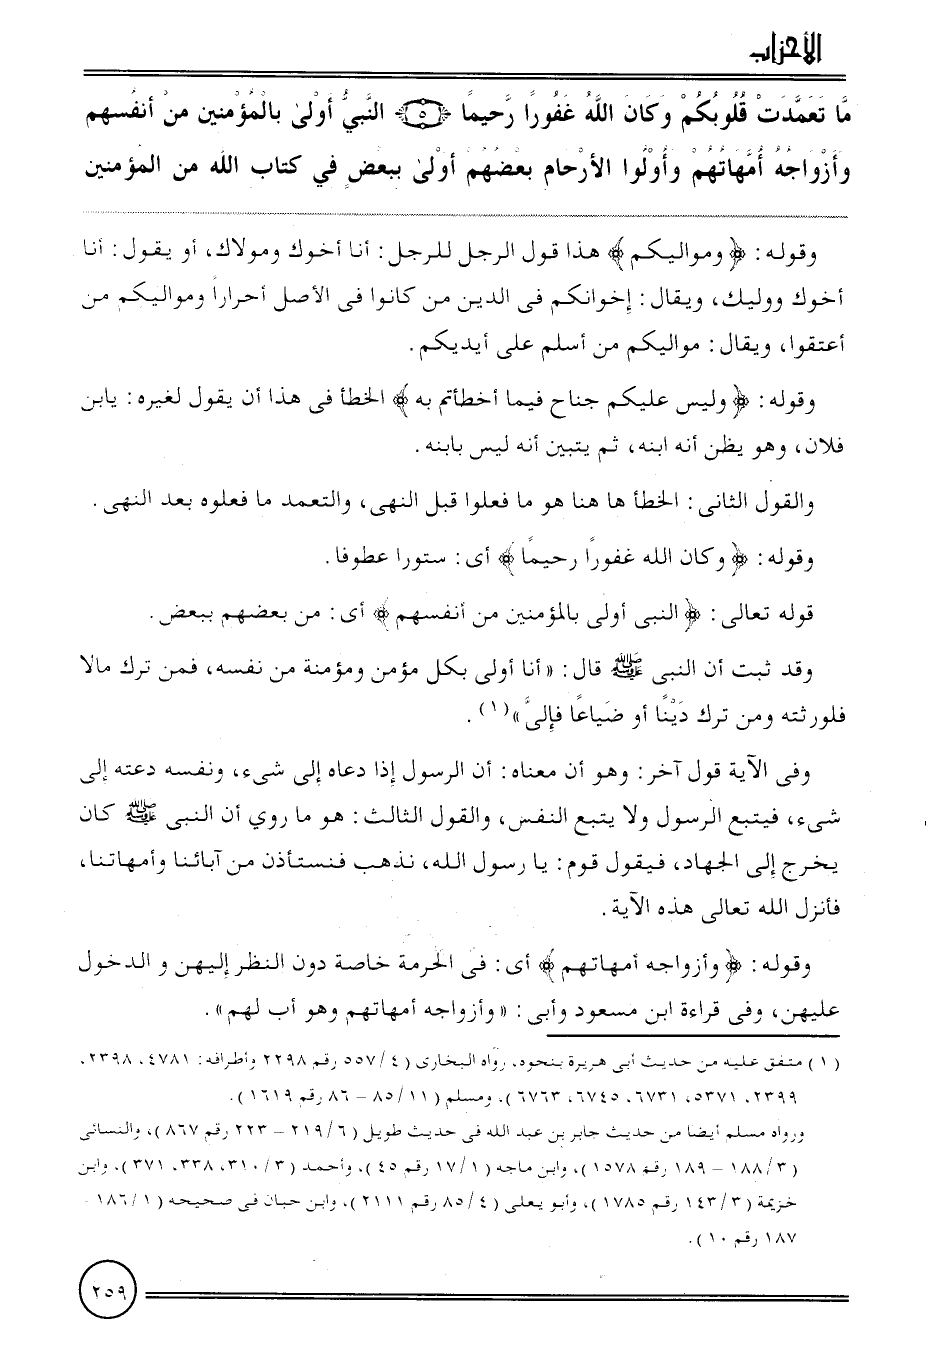 الأحزاب
مَّا تَعَمَّدَتْ قُلُوبُكُمْ وَكَانَ اللَّهُ غَفُورًا رَّحِيمًا ﴿٥﴾ النَّبِيُّ أَوْلَىٰ بِالْمُؤْمِنِينَ مِنْ أَنفُسِهِمْ
وَأَزْوَاجُهُ أُمَّهَاتُهُمْ وَأُوْلُوا الأَرْحَامِ بَعْضُهُمْ أَوْلَىٰ بِبَعْضٍ فِي كتاب الله من المؤمنين
وقوله: ﴿ومواليكم﴾ هذا قول الرجل للرجل: أنا أخوك ومولاك، أو يقول: أنا
أخوك ووليك، ويقال: إخوانكم فى الدين من كانوا فى الأصل أحراراً ومواليكم من
أعتقوا، ويقال: مواليكم من أسلم على أيديكم.
وقوله: ﴿وليس عليكم جناح فيما أخطأتم به﴾ الخطأ فى هذا أن يقول لغيره: يابن
فلان، وهو يظن أنه ابنه، ثم يتبين أنه ليس بابنه.
والقول الثانى: الخطأ ها هنا هو ما فعلوا قبل النهى، والتعمد ما فعلوه بعد النهى.
وقوله: ﴿وكان الله غفورًا رحيمًا﴾ أى: ستورا عطوفا.
قوله تعالى: ﴿النبى أولى بالمؤمنين من أنفسهم﴾ أى: من بعضهم ببعض.
وقد ثبت أن النبى ﷺ قال: «أنا أولى بكل مؤمن ومؤمنة من نفسه، فمن ترك مالا
فلورثته ومن ترك دَيْنًا أو ضَياعًا فإلىَّ»(١).
وفى الآية قول آخر: وهو أن معناه: أن الرسول إذا دعاه إلى شىء، ونفسه دعته إلى
شىء، فيتبع الرسول ولا يتبع النفس، والقول الثالث: هو ما روي أن النبى ﷺ كان
يخرج إلى الجهاد، فيقول قوم: يا رسول الله، نذهب فنستأذن من آبائنا وأمهاتنا،
فأنزل الله تعالى هذه الآية.
وقوله: ﴿وأزواجه أمهاتهم﴾ أى: فى الحَرمة خاصة دون النظر إليهن و الدخول
عليهن، وفى قراءة ابن مسعود وأبى: «وأزواجه أمهاتهم وهو أب لهم».
(١) متفق عليه من حديث أبى هريرة بنحوه، رواه البخارى (٥٥٧/٤ رقم ٢٢٩٨ وأطرافه: ٤٧٨١، ٢٣٩٨،
٢٣٩٩، ٥٣٧١، ٦٧٣١، ٦٧٤٥، ٦٧٦٣). ومسلم (٨٥/١١ – ٨٦ رقم ١٦١٩).
ورواه مسلم أيضا من حديث جابر بن عبد الله فى حديث طويل (٢١٩/٦ – ٢٢٣ رقم ٨٦٧)، والنسائى
(١٨٨/٣ – ١٨٩ رقم ١٥٧٨)، وابن ماجه (١٧/١ رقم ٤٥)، وأحمد (٣١٠/٣، ٣٣٨، ٣٧١)، وابن
خزيمة (١٤٣/٣ رقم ١٧٨٥)، وأبو يعلى (٨٥/٤ رقم ٢١١١)، وابن حبان فى صحيحه (١٨٦/١ -
١٨٧ رقم ١٠).
٢٥٩